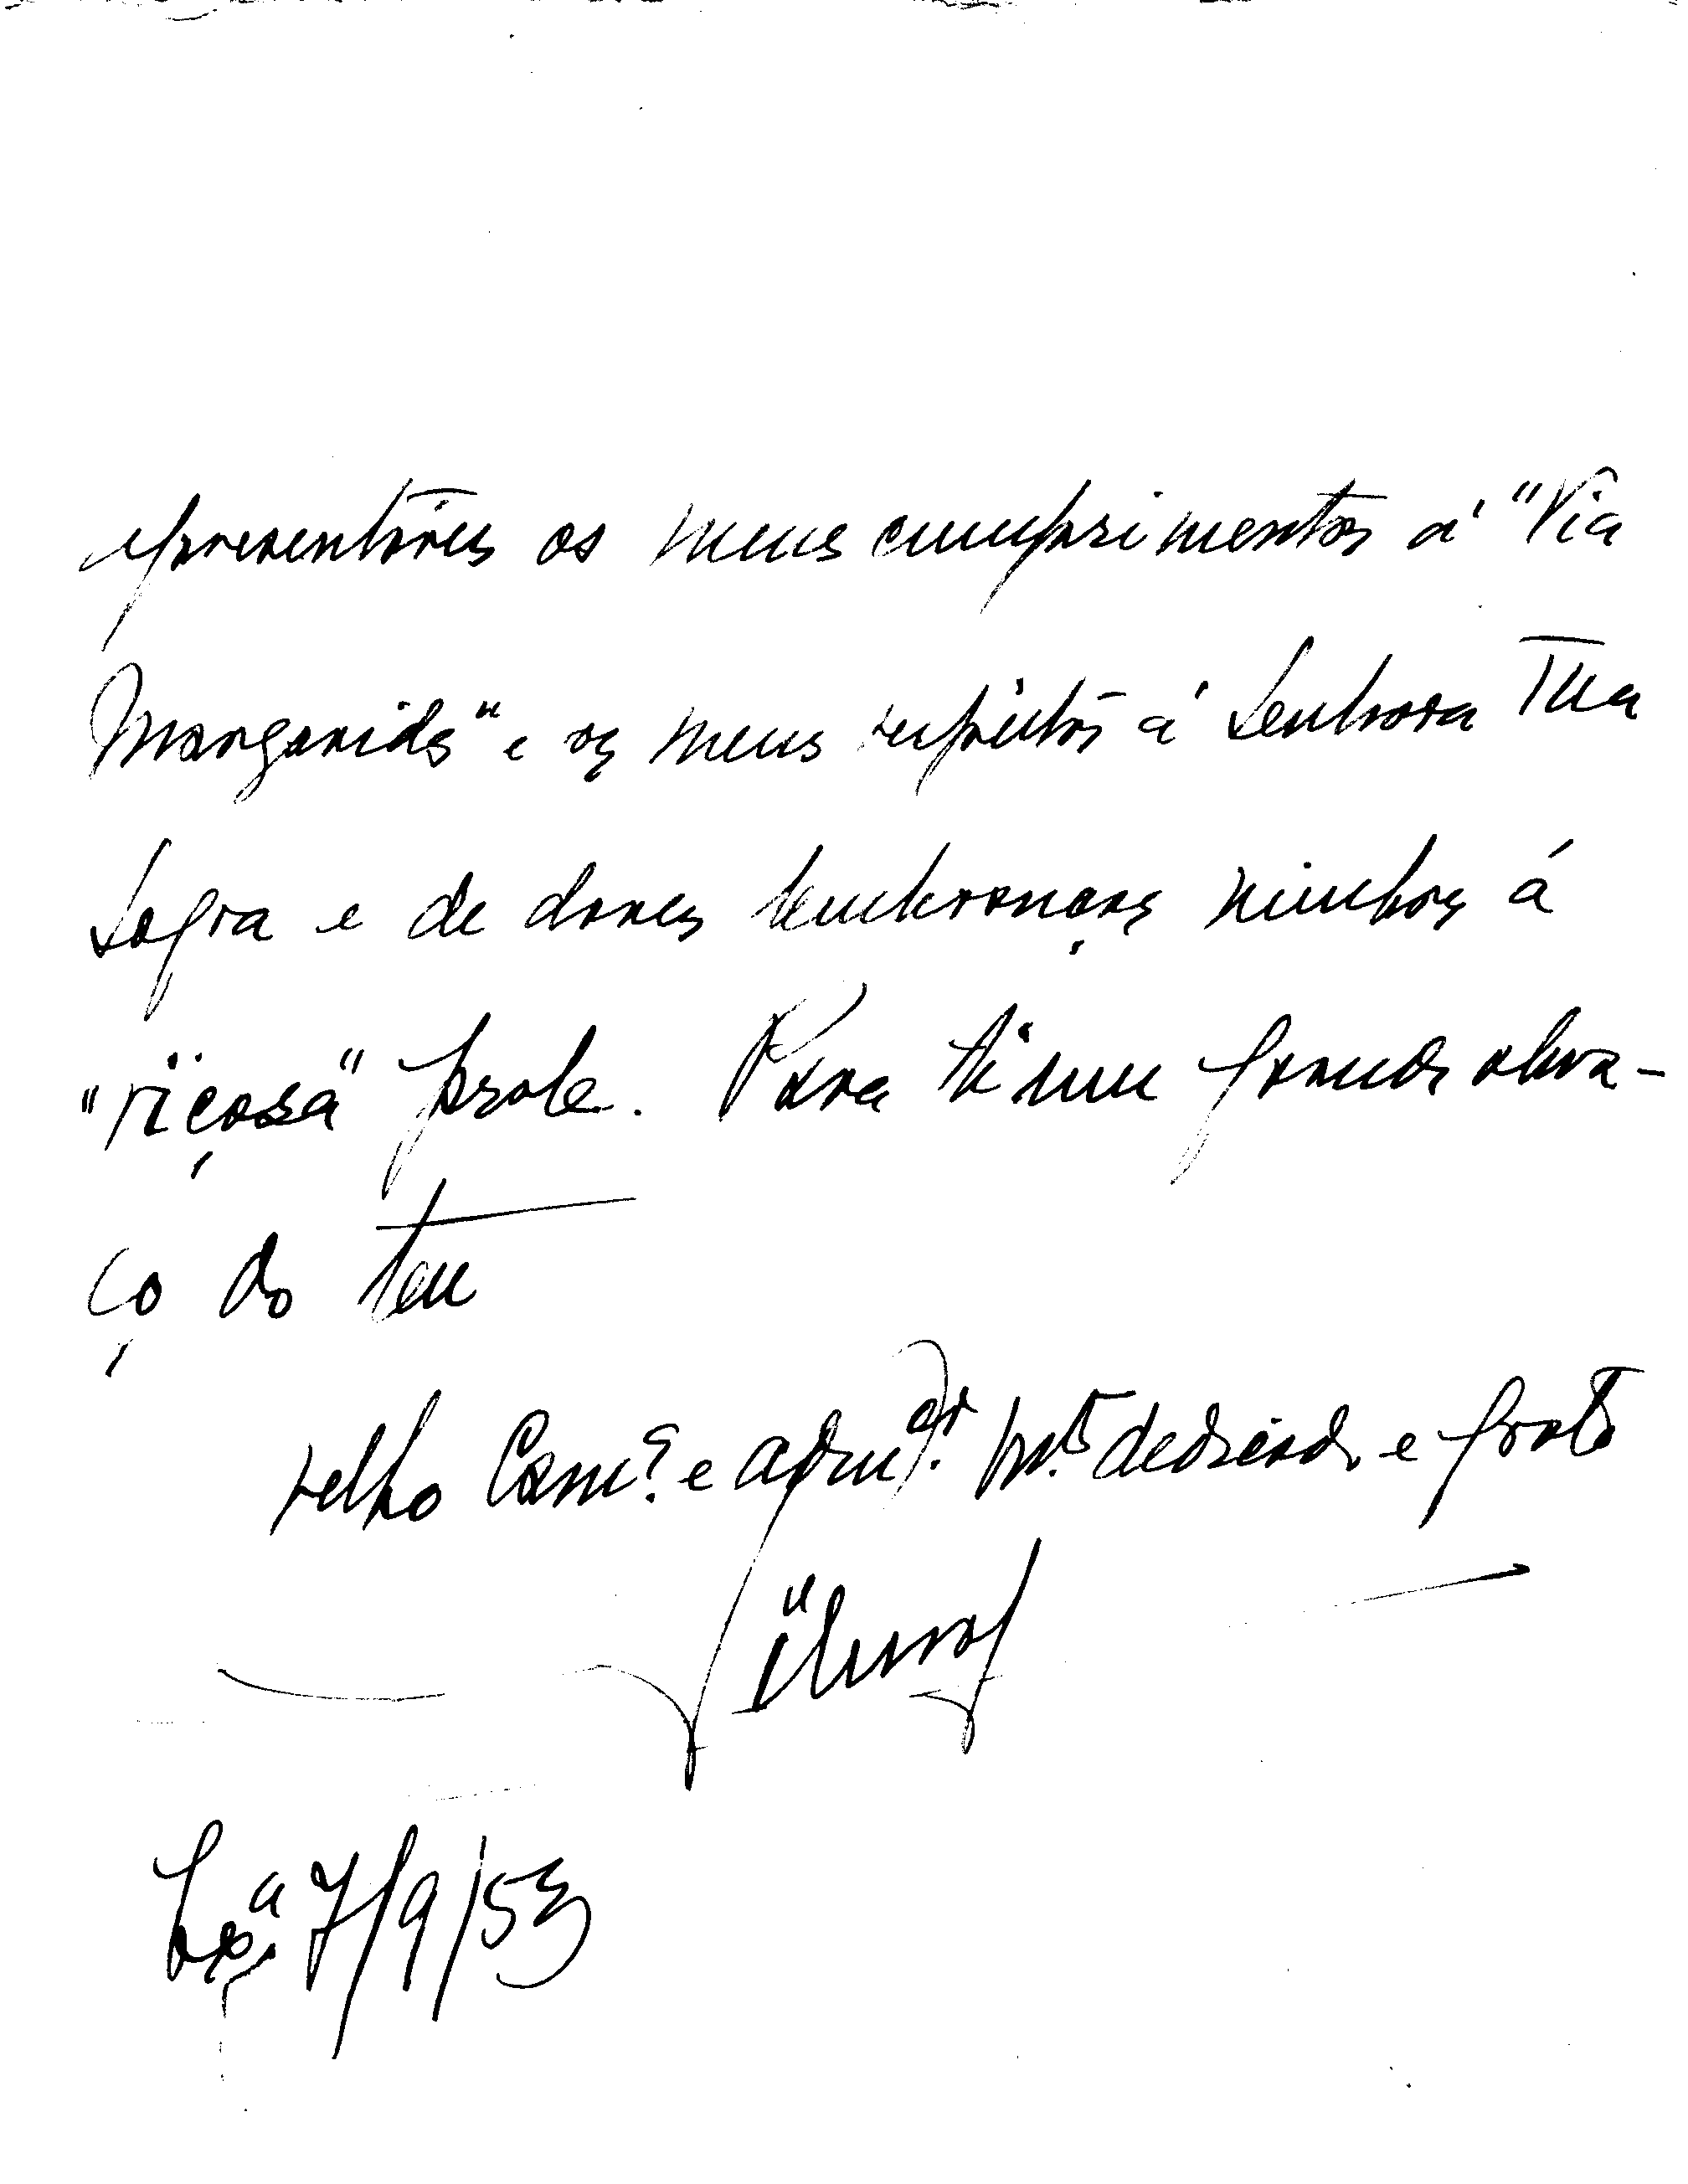 apresentares os meus cumprimentos á "Via
Margarida" e os meus respeitos á Senhora Tua
Sogra e de dares lembranças minhas á
"riçosa" prole. Para ti um grande abra-
ço do teu
velho Cam.ª e admdor. mt.º dedicado e grato

Lxª. 7/9/53